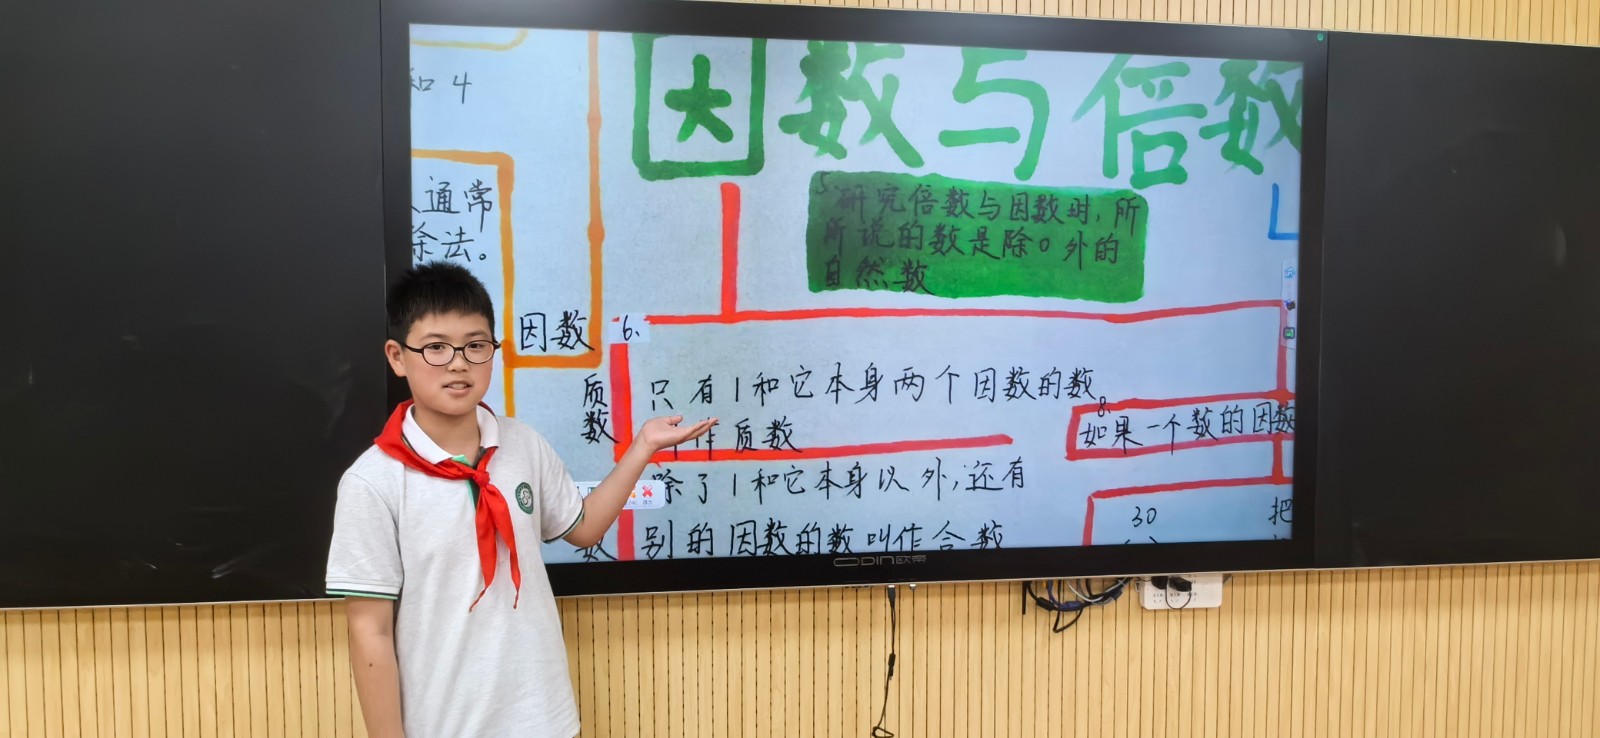 和 4
因数与倍数
通常
除法。
5.研究倍数与因数时,所
所说的数是除0外的
自然数
因数
6.
质数
只有1和它本身两个因数的数。
叫作质数
除了1和它本身以外,还有
别的因数的数叫作合数
数
8.
如果一个数的因数
30
把
ODin欧帝